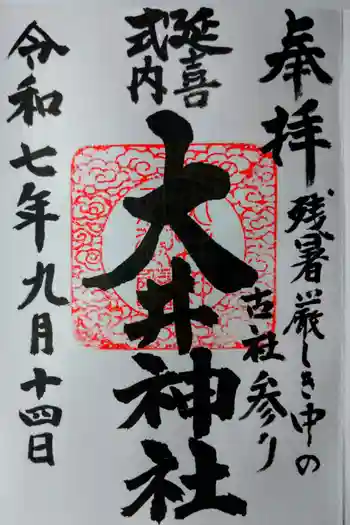 奉拝
残暑厳しき中の
古社参り
延喜
式内
大井神社
令和七年九月十四日